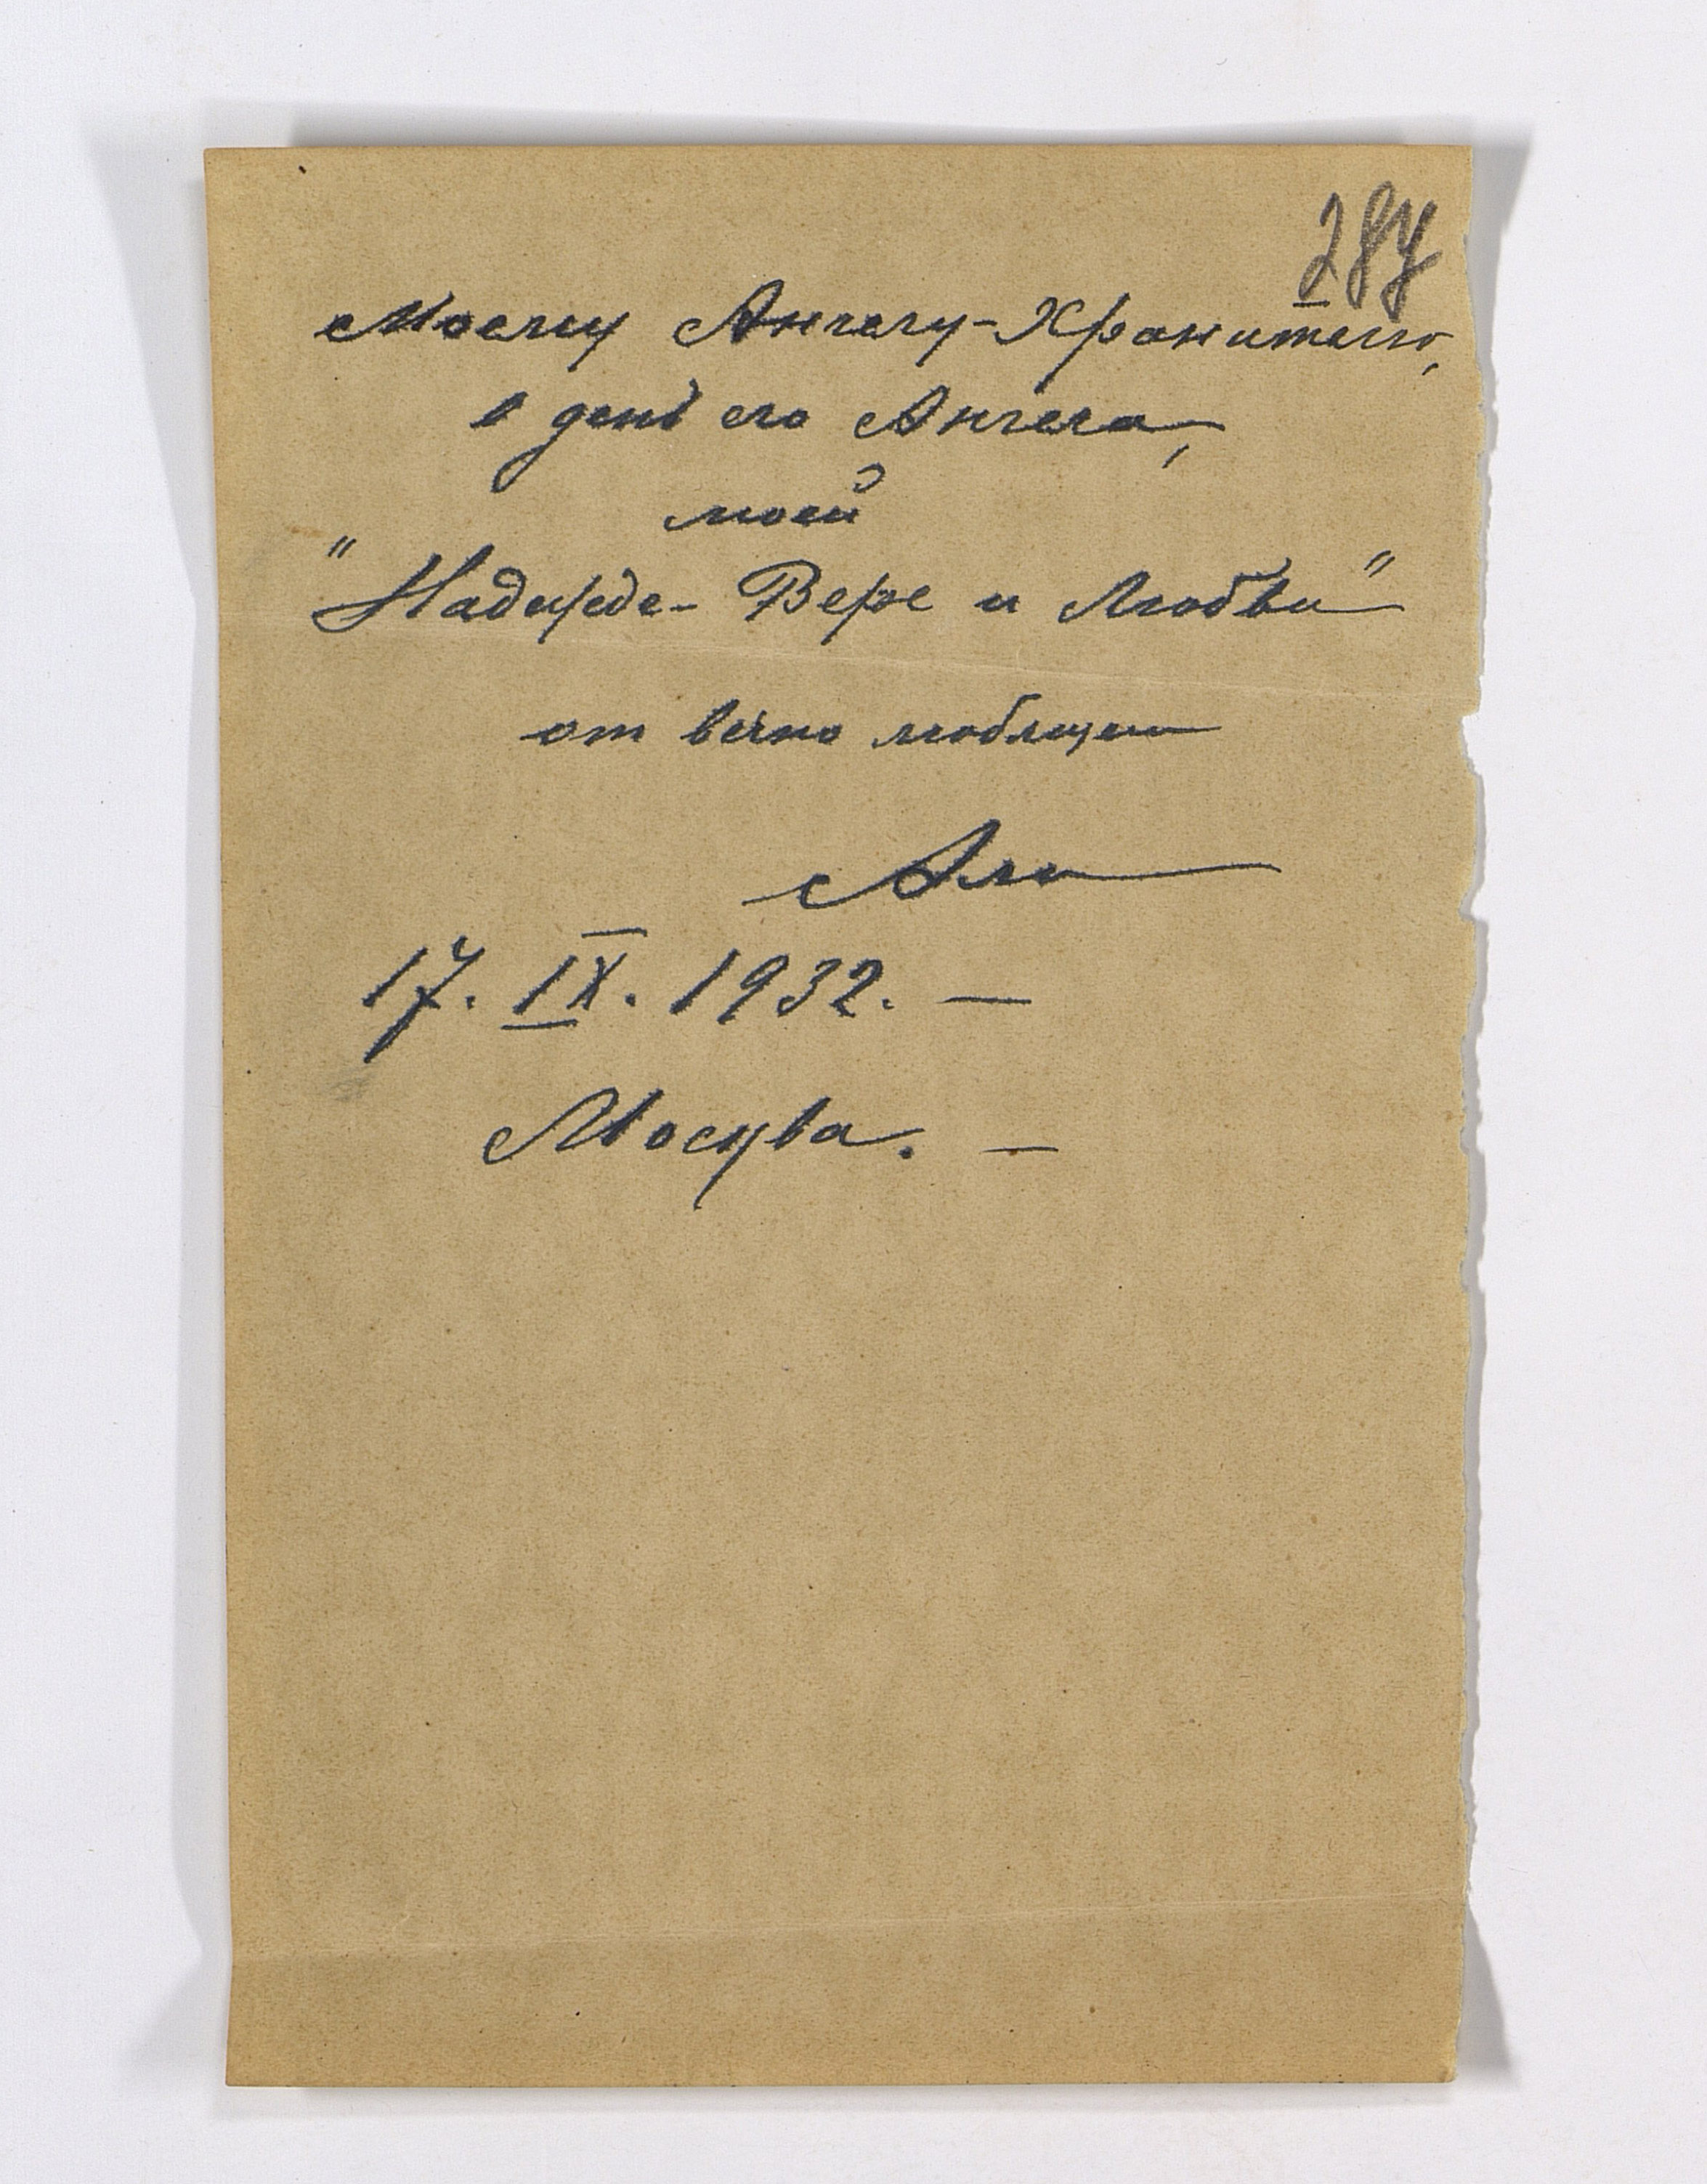 287
Моему Ангелу-Хранителю,
в день его Ангела,
моей
"Надежде-Вере и Любви"
от вечно любящей
Али
17. IX. 1932. —
Москва. —